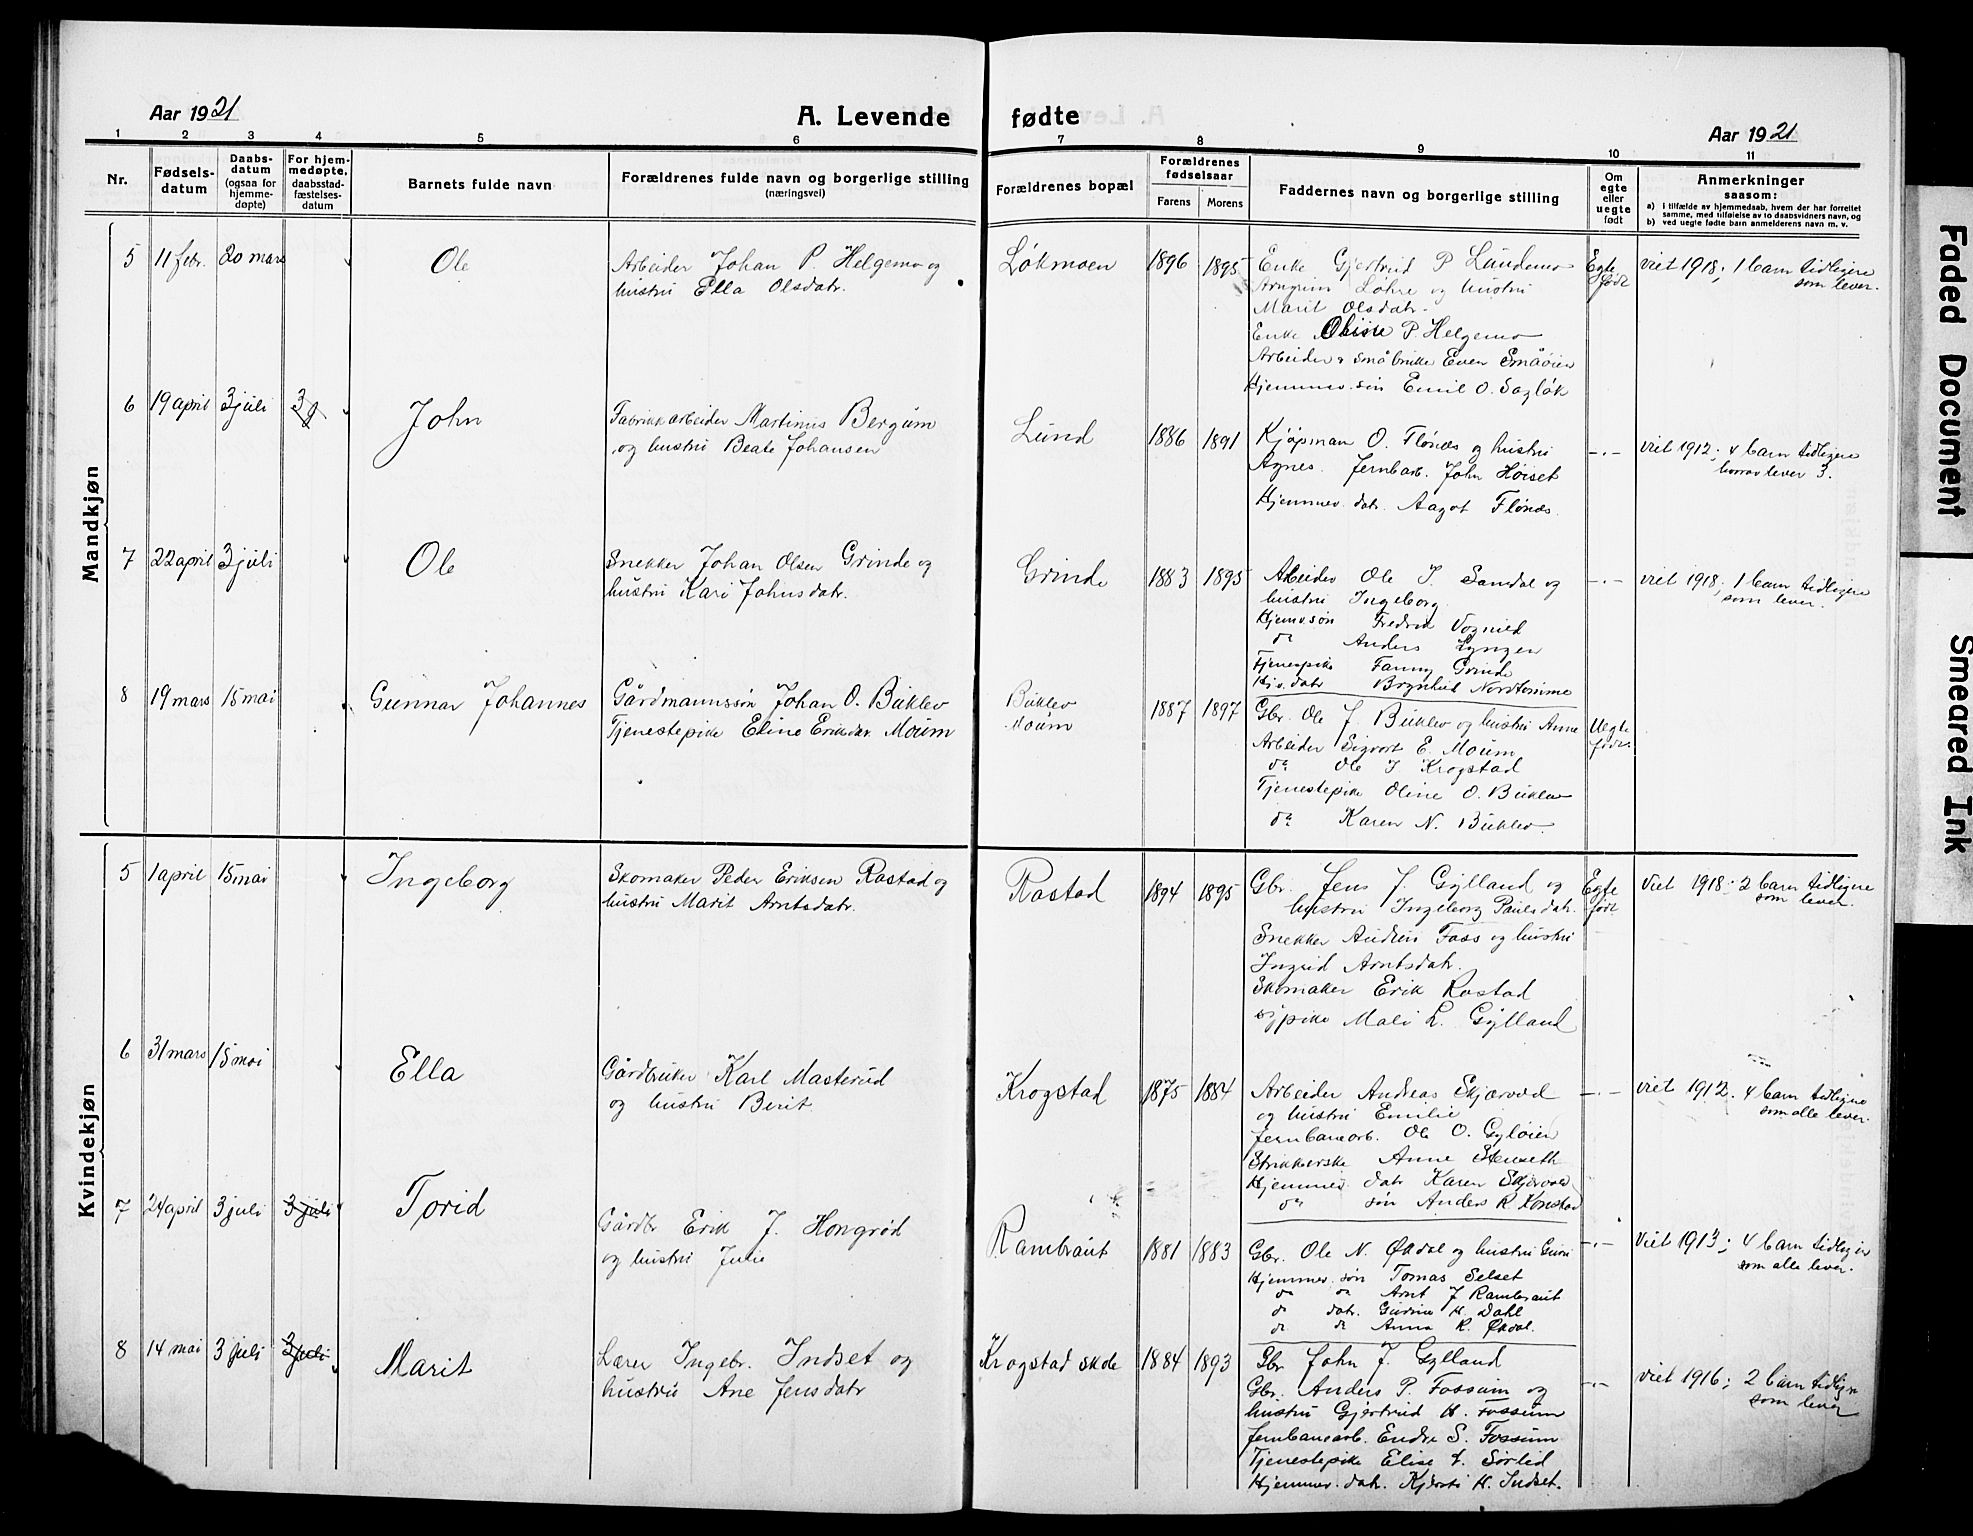 Aar 1921
A. Levende fødte
Aar 1921
1 2 3 4 5 6 7 8 9 10 11
Nr.
Fødsels-
datum
Daabs-
datum
(ogsaa for
hjemme-
døpte)
For hjem-
medøpte,
daabsstad-
fæstelses-
datum
Barnets fulde navn
Forældrenes fulde navn og borgerlige stilling
(næringsvei)
Forældrenes bopæl
Forældrenes
fødselsaar
Farens Morens
Faddernes navn og borgerlige stilling
Om
egte
eller
uegte
født
Anmerkninger
saasom:
a) i tilfælde av hjemmedaab, hvem der har forrettet
samme, med tilføielse av to daabsvidners navn, og
b) ved uegte fødte barn anmelderens navn m. v.
Mandkjøn
5 11 febr. 20 mars
Ole
Arbeider Johan P. Helgemo og
hustru Ella Olsdatr.
Løkmoen
1896 1895
Enke Gjertrud P Lundemo
Arngrim Løhre og hustru
Marit Olsdatr.
Enke Oline P. Helgemo
Arbeider & småbruker Even Småøien
Hjemmev. søn Emil O. Sagløk
Egte
født
viet 1918; 1 barn tidligere
som lever.
6 19 april 3 juli
John
Fabrikkarbeider Martinus Bergum
og hustru Beate Johansen
Lund
1886 1891
Kjøpman O. Flønæs og hustru
Agnes. Jernbarb. John Høiset
Hjemmev. datr. Aagot Flønæs.
-.-
viet 1912; 4 barn tidligere
hvorav lever 3.
7 22 april 3 juli
Ole
Snekker Johan Olsen Grinde og
hustru Kari Johnsdatr.
Grinde
1883 1895
Arbeider Ole J. Sandal og
hustru Ingeborg
Hjemv. søn Fredrik Vognild
do Anders Lyngen
Tjenespike Fanny Grinde
Hjv. datr Brynhild Nordtømme
-.-
viet 1918; 1 barn tidligere
som lever.
8 19 mars 15 mai
Gunnar Johannes
Gårdmannssøn Johan O. Buklev
Tjenestepike Eline Eriksdtr. Moum
Buklev
Moum
1887 1897
Gbr. Ole J. Buklev og hustru Anne
Arbeider Sigvart E. Moum
do Ole J Krogstad
Tjenestepike Oline O. Buklev
do Karen N. Buklev.
Uegte
født.
Kvindekjøn
5 1 april 15 mai
Ingeborg
Skomaker Peder Eriksen Rostad og
hustru Marit Arntsdatr.
Rostad
1894 1895
Gbr. Jens J. Gylland og
hustru Ingeborg Paulsdatr.
Snekker Andreas Foss og hustru
Ingrid Arntsdatr.
Skomaker Erik Rostad
sypike Mali L. Gylland
Egte
født
Viet 1918: 2 barn tidligere
som lever.
6 31 mars 15 mai
Ella
Gårdbruker Karl Masterud
og hustru Berit.
Krogstad
1875 1884
Arbeider Andreas Skjærvold
og hustru Emilie
Jernbanearb. Ole O. Gyløien
Strikkerske Anne Stenseth
Hjemmev. datr Karen Skjærvold
do søn Anders R. Konstad
-.-
viet 1912. 4 barn tidligere
som alle lever.
7 24 april 3 juli 3 juli
Torid
Gårdbr Erik J. Hongrød
og hustru Julie
Rambraut
1881 1883
Gbr. Ole N. Økdal og hustru Guri
Hjemmev. søn Tomas Selset
do do Arnt J Rambraut
do datr. Gurine H. Dahl
do do Anna R. Økdal.
-.-
Viet 1913; 4 barn tidliger
som alle lever.
8 14 mai 3 juli 3 juli
Marit
Lærer Ingebr. Indset og
hustru Ane Jensdatr
Krogstad skole
1884 1893
Gbr. John J. Gylland
Gbr. Anders P. Fossum og
hustru Gjertrud H. Fossum
Jernbanearb. Endre S. Fossum
Tjenestepike Elise I. Sørlid
Hjemmev. datr. Kjersti H. Indset.
-.-
viet 1916; 2 barn tidliger
som lever
Faded Document
Smeared Ink